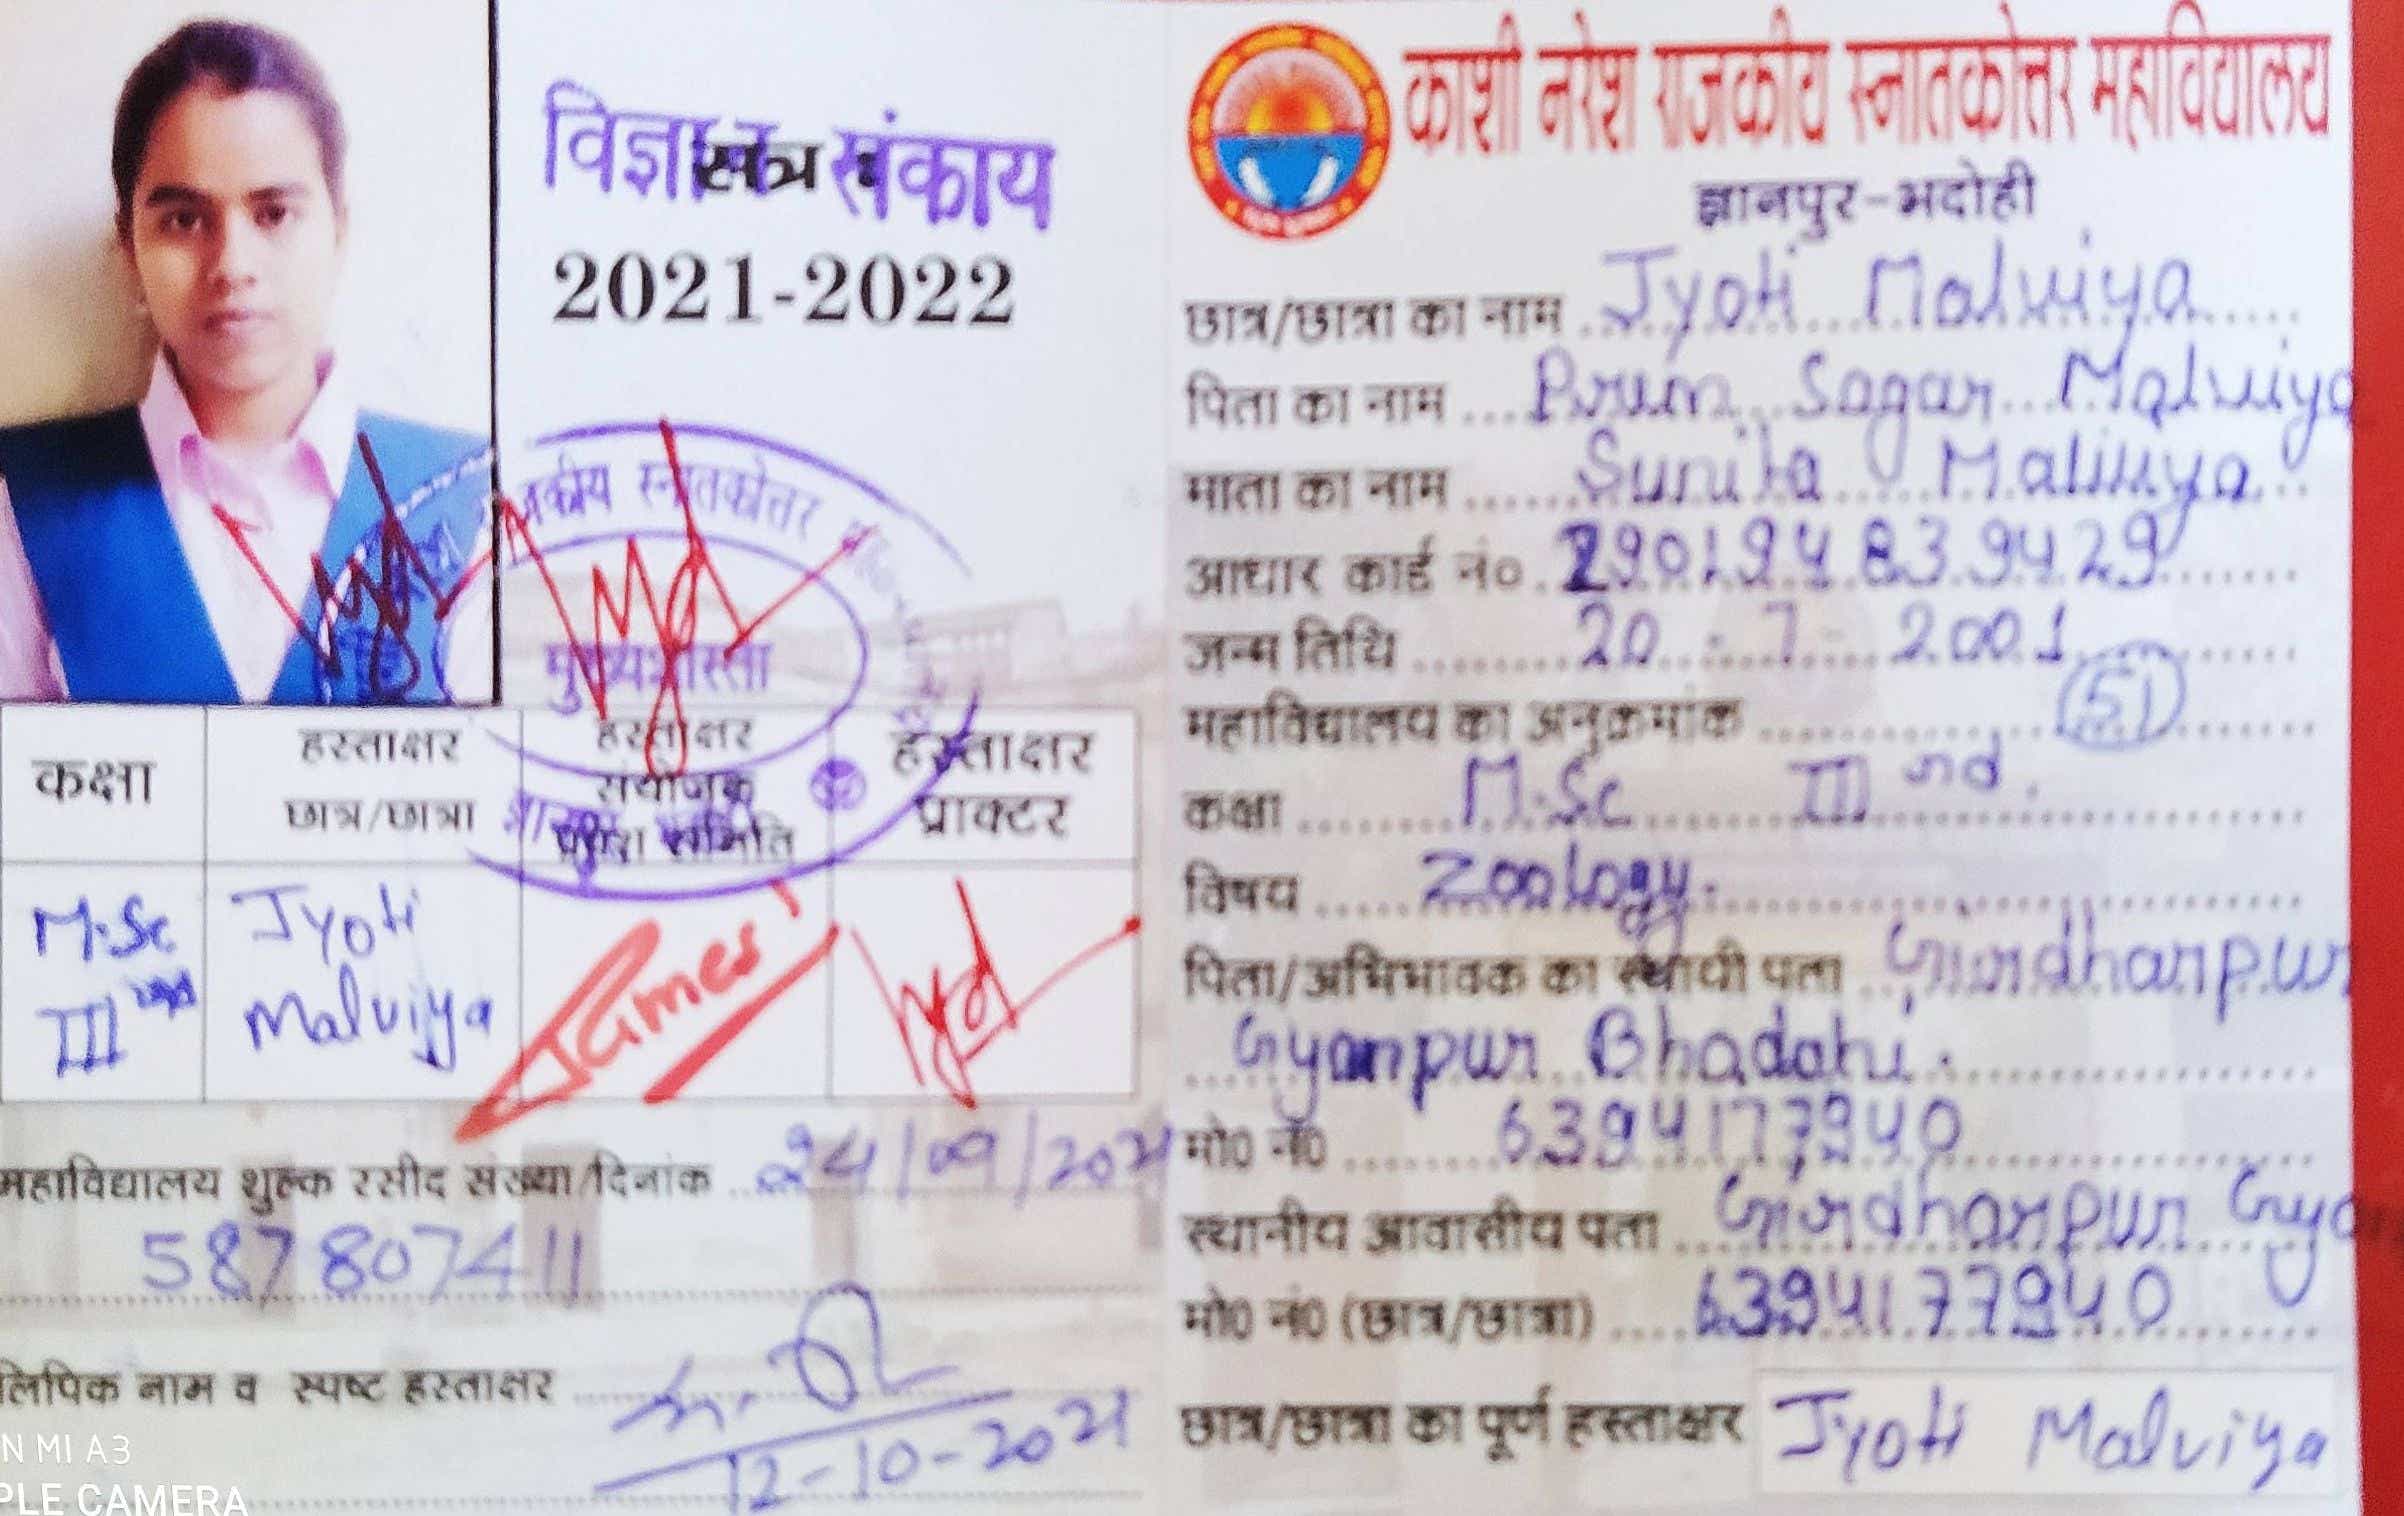 विज्ञान संकाय
सत्र :
2021-2022
राजकीय स्नातकोत्तर
मुख्यशास्ता
कक्षा
हस्ताक्षर
छात्र/छात्रा
हस्ताक्षर
संयोजक
प्रवेश समिति
हस्ताक्षर
प्राक्टर
M.Sc
III
Jyoti
Malviya
महाविद्यालय शुल्क रसीद संख्या/दिनांक 24/09/2021
587807411
लिपिक नाम व स्पष्ट हस्ताक्षर
12-10-2021
काशी नरेश राजकीय स्नातकोत्तर महाविद्यालय
ज्ञानपुर-भदोही
छात्र/छात्रा का नाम Jyoti Malviya
पिता का नाम Prem Sagar Malviya
माता का नाम Sunita Malviya
आधार कार्ड नं० 290194839429
जन्म तिथि 20-7-2001
महाविद्यालय का अनुक्रमांक 51
कक्षा M.Sc III nd.
विषय Zoology.
पिता/अभिभावक का स्थायी पता Girdharpur
Gyanpur Bhadohi.
मो0 नं0 6394177940
स्थानीय आवासीय पता Girdharpur Gya
मो0 नं0 (छात्र/छात्रा) 6394177940
छात्र/छात्रा का पूर्ण हस्ताक्षर Jyoti Malviya
N MI A3
PLE CAMERA